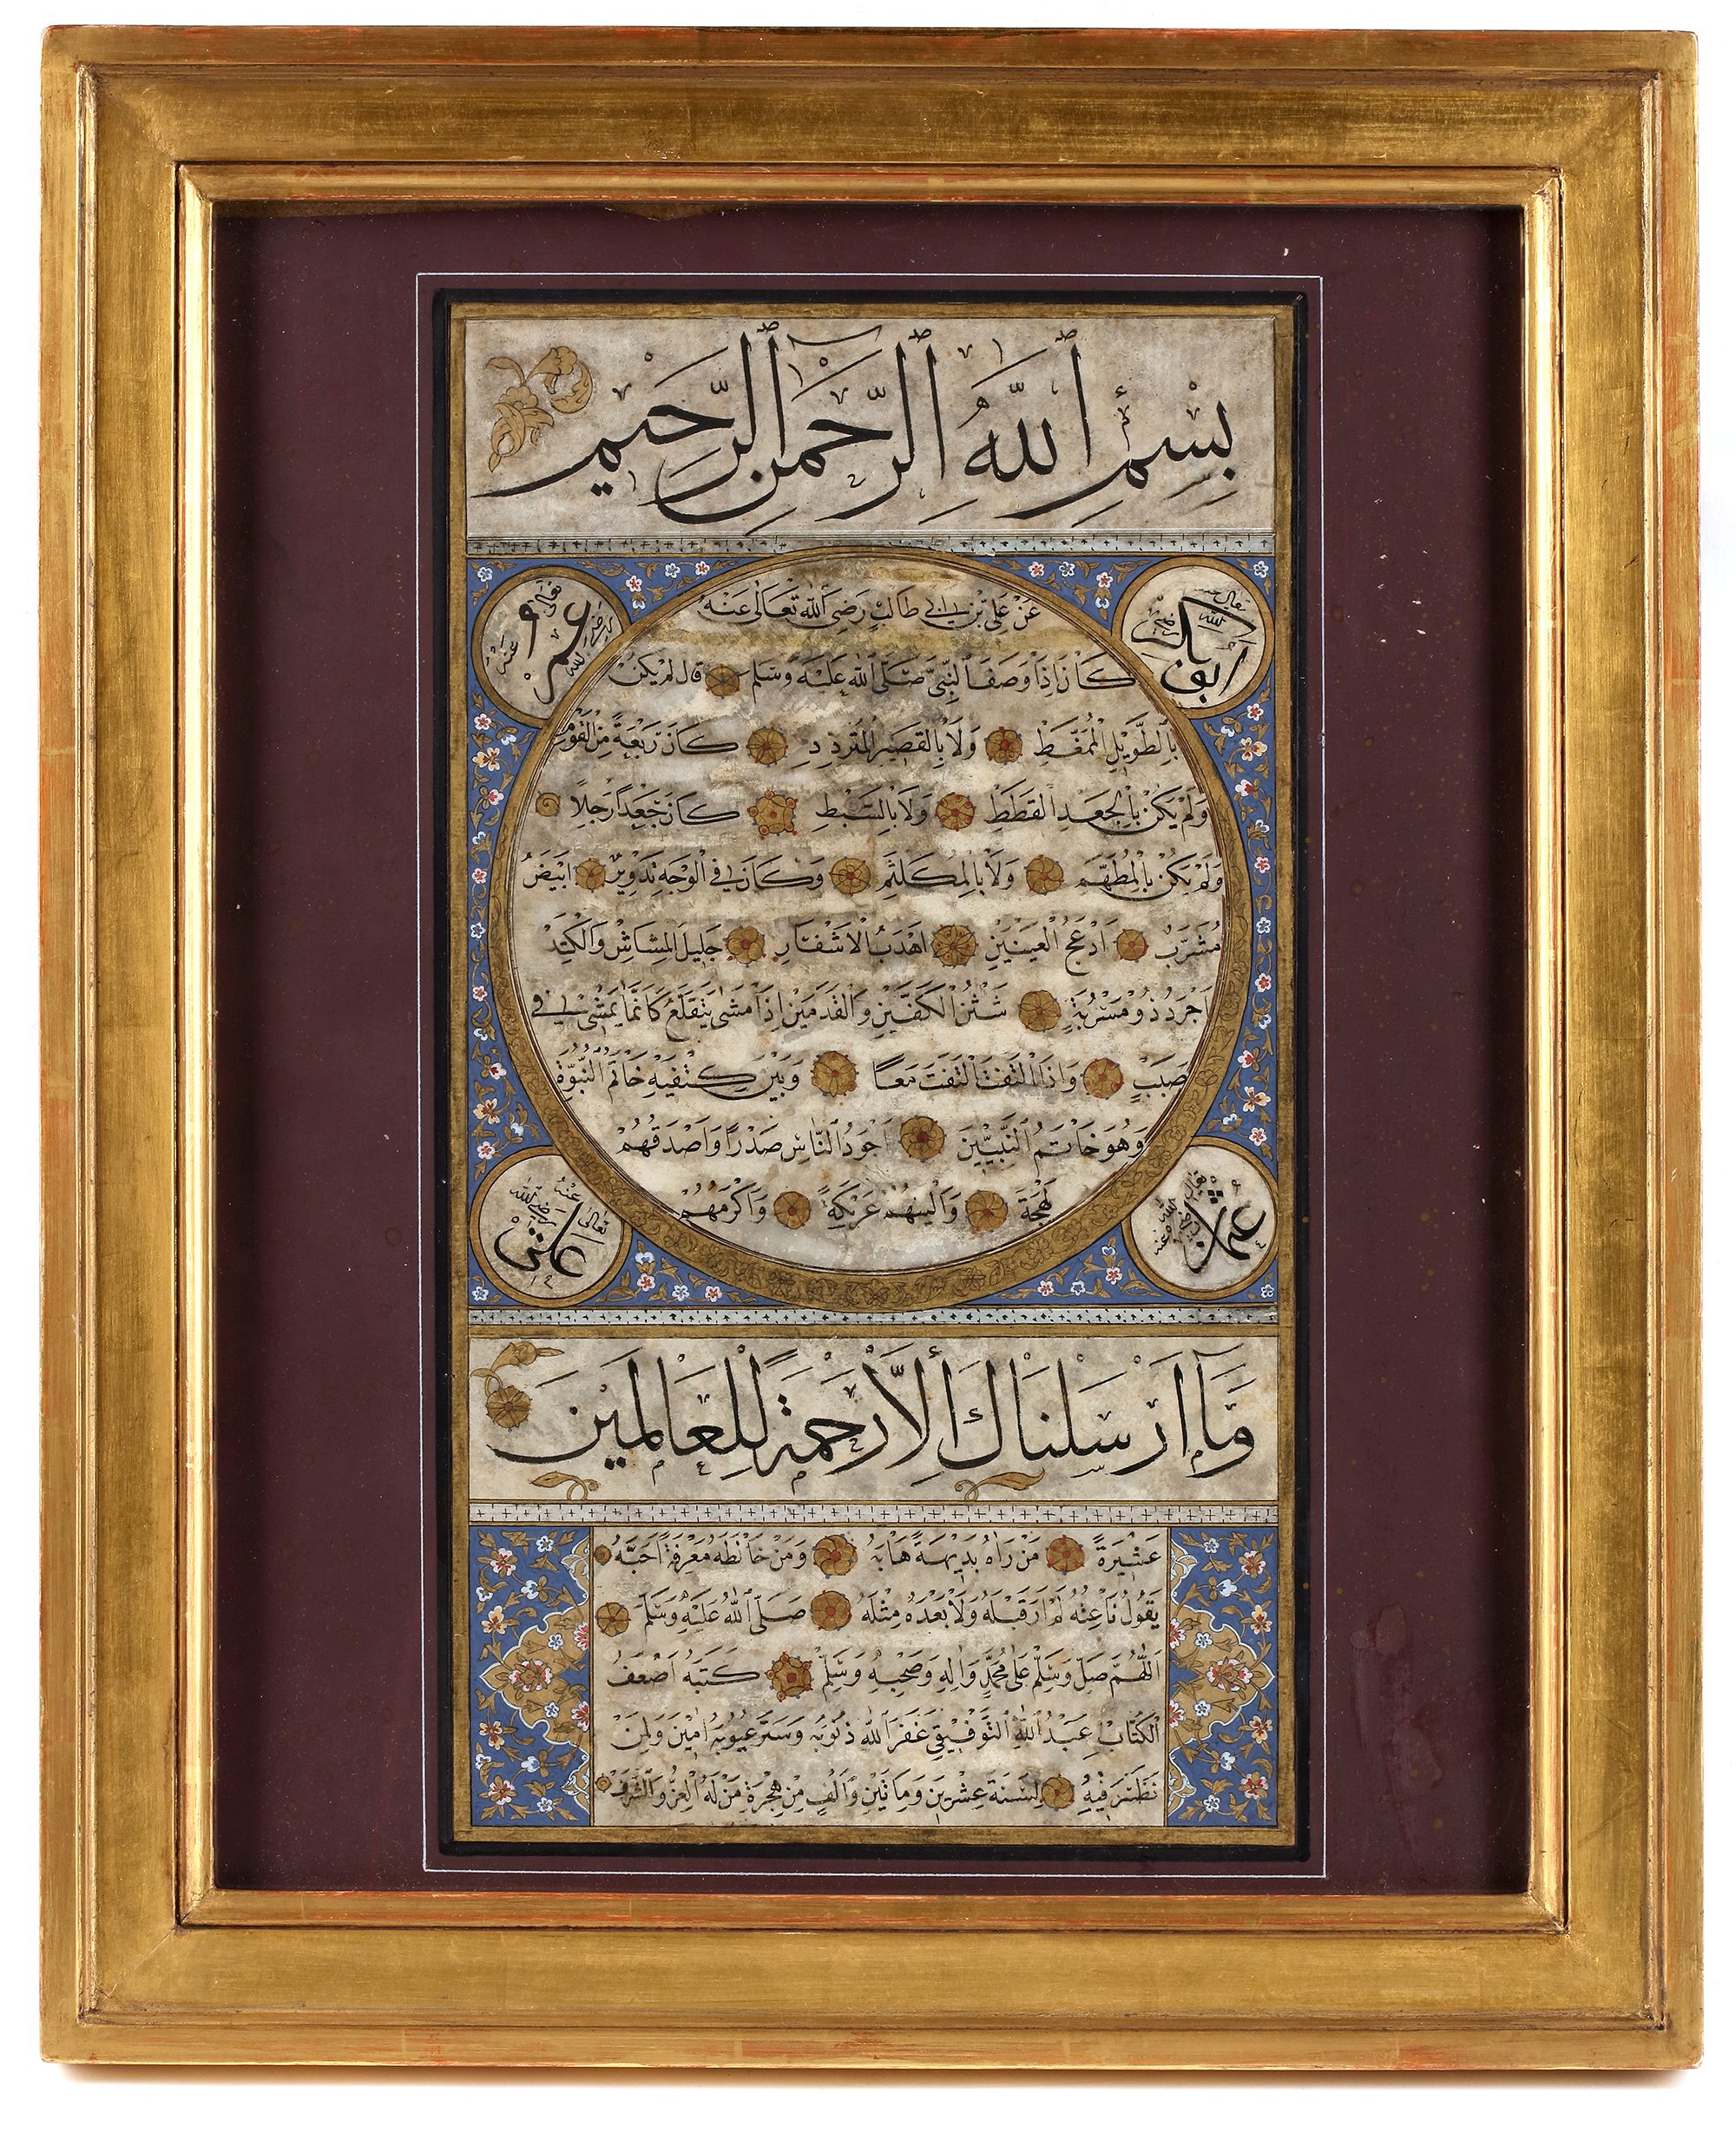 بِسْمِ اللّٰهِ الرَّحْمٰنِ الرَّحِيمِ
ابو بكر رضي الله تعالى عنه
عمر رضي الله تعالى عنه
عَنْ عَلِىِّ بْنِ اَبِى طَالِبٍ رَضِىَ اللّٰهُ تَعَالٰى عَنْهُ
كَانَ اِذَا وَصَفَ النَّبِىَّ صَلَّى اللّٰهُ عَلَيْهِ وَسَلَّمَ قَالَ لَمْ يَكُنْ
بِالطَّوِيْلِ الْمُمَّغَطِ وَلَا بِالْقَصِيْرِ الْمُتَرَدِّدِ كَانَ رَبْعَةً مِنَ الْقَوْمِ
وَلَمْ يَكُنْ بِالْجَعْدِ الْقَطَطِ وَلَا بِالسَّبْطِ كَانَ جَعْدًا رَجِلًا
وَلَمْ يَكُنْ بِالْمُطَهَّمِ وَلَا بِالْمُكَلْثَمِ وَكَانَ فِى الْوَجْهِ تَدْوِيْرٌ اَبْيَضُ
مُشْرَبٌ اَدْعَجُ الْعَيْنَيْنِ اَهْدَبُ الْاَشْفَارِ جَلِيلُ الْمُشَاشِ وَالْكَتَدِ
اَجْرَدُ ذُوْ مَسْرُبَةٍ شَثْنُ الْكَفَّيْنِ وَالْقَدَمَيْنِ اِذَا مَشٰى يَتَقَلَّعُ كَاَنَّمَا يَمْشِى فِى
صَبَبٍ وَاِذَا الْتَفَتَ الْتَفَتَ مَعًا وَبَيْنَ كَتِفَيْهِ خَاتَمُ النُّبُوَّةِ
وَهُوَ خَاتَمُ النَّبِيِّيْنَ اَجْوَدُ النَّاسِ صَدْرًا وَاَصْدَقُهُمْ
لَهْجَةً وَاَلْيَنُهُمْ عَرِيْكَةً وَاَكْرَمُهُمْ
عثمان رضي الله تعالى عنه
علي رضي الله تعالى عنه
وَمَا اَرْسَلْنَاكَ اِلَّا رَحْمَةً لِلْعَالَمِيْنَ
عَشِيْرَةً مَنْ رَاٰهُ بَدِيْهَةً هَابَهُ وَمَنْ خَالَطَهُ مَعْرِفَةً اَحَبَّهُ
يَقُوْلُ نَاعِتُهُ لَمْ اَرَ قَبْلَهُ وَلَا بَعْدَهُ مِثْلَهُ صَلَّى اللّٰهُ عَلَيْهِ وَسَلَّمَ
اَللّٰهُمَّ صَلِّ وَسَلِّمْ عَلٰى مُحَمَّدٍ وَاٰلِهِ وَصَحْبِهِ وَسَلِّمْ كَتَبَهُ اَضْعَفُ
الْكُتَّابِ عَبْدُ اللّٰهِ التَّوْفِيْقِى غَفَرَ اللّٰهُ ذُنُوْبَهُ وَسَتَرَ عُيُوْبَهُ اٰمِيْنَ وَلِمَنْ
نَظَرَ فِيْهِ لِسَنَةِ عِشْرِيْنَ وَمِاَتَيْنِ وَاَلْفٍ مِنْ هِجْرَةِ مَنْ لَهُ الْعِزُّ وَالشَّرَفُ